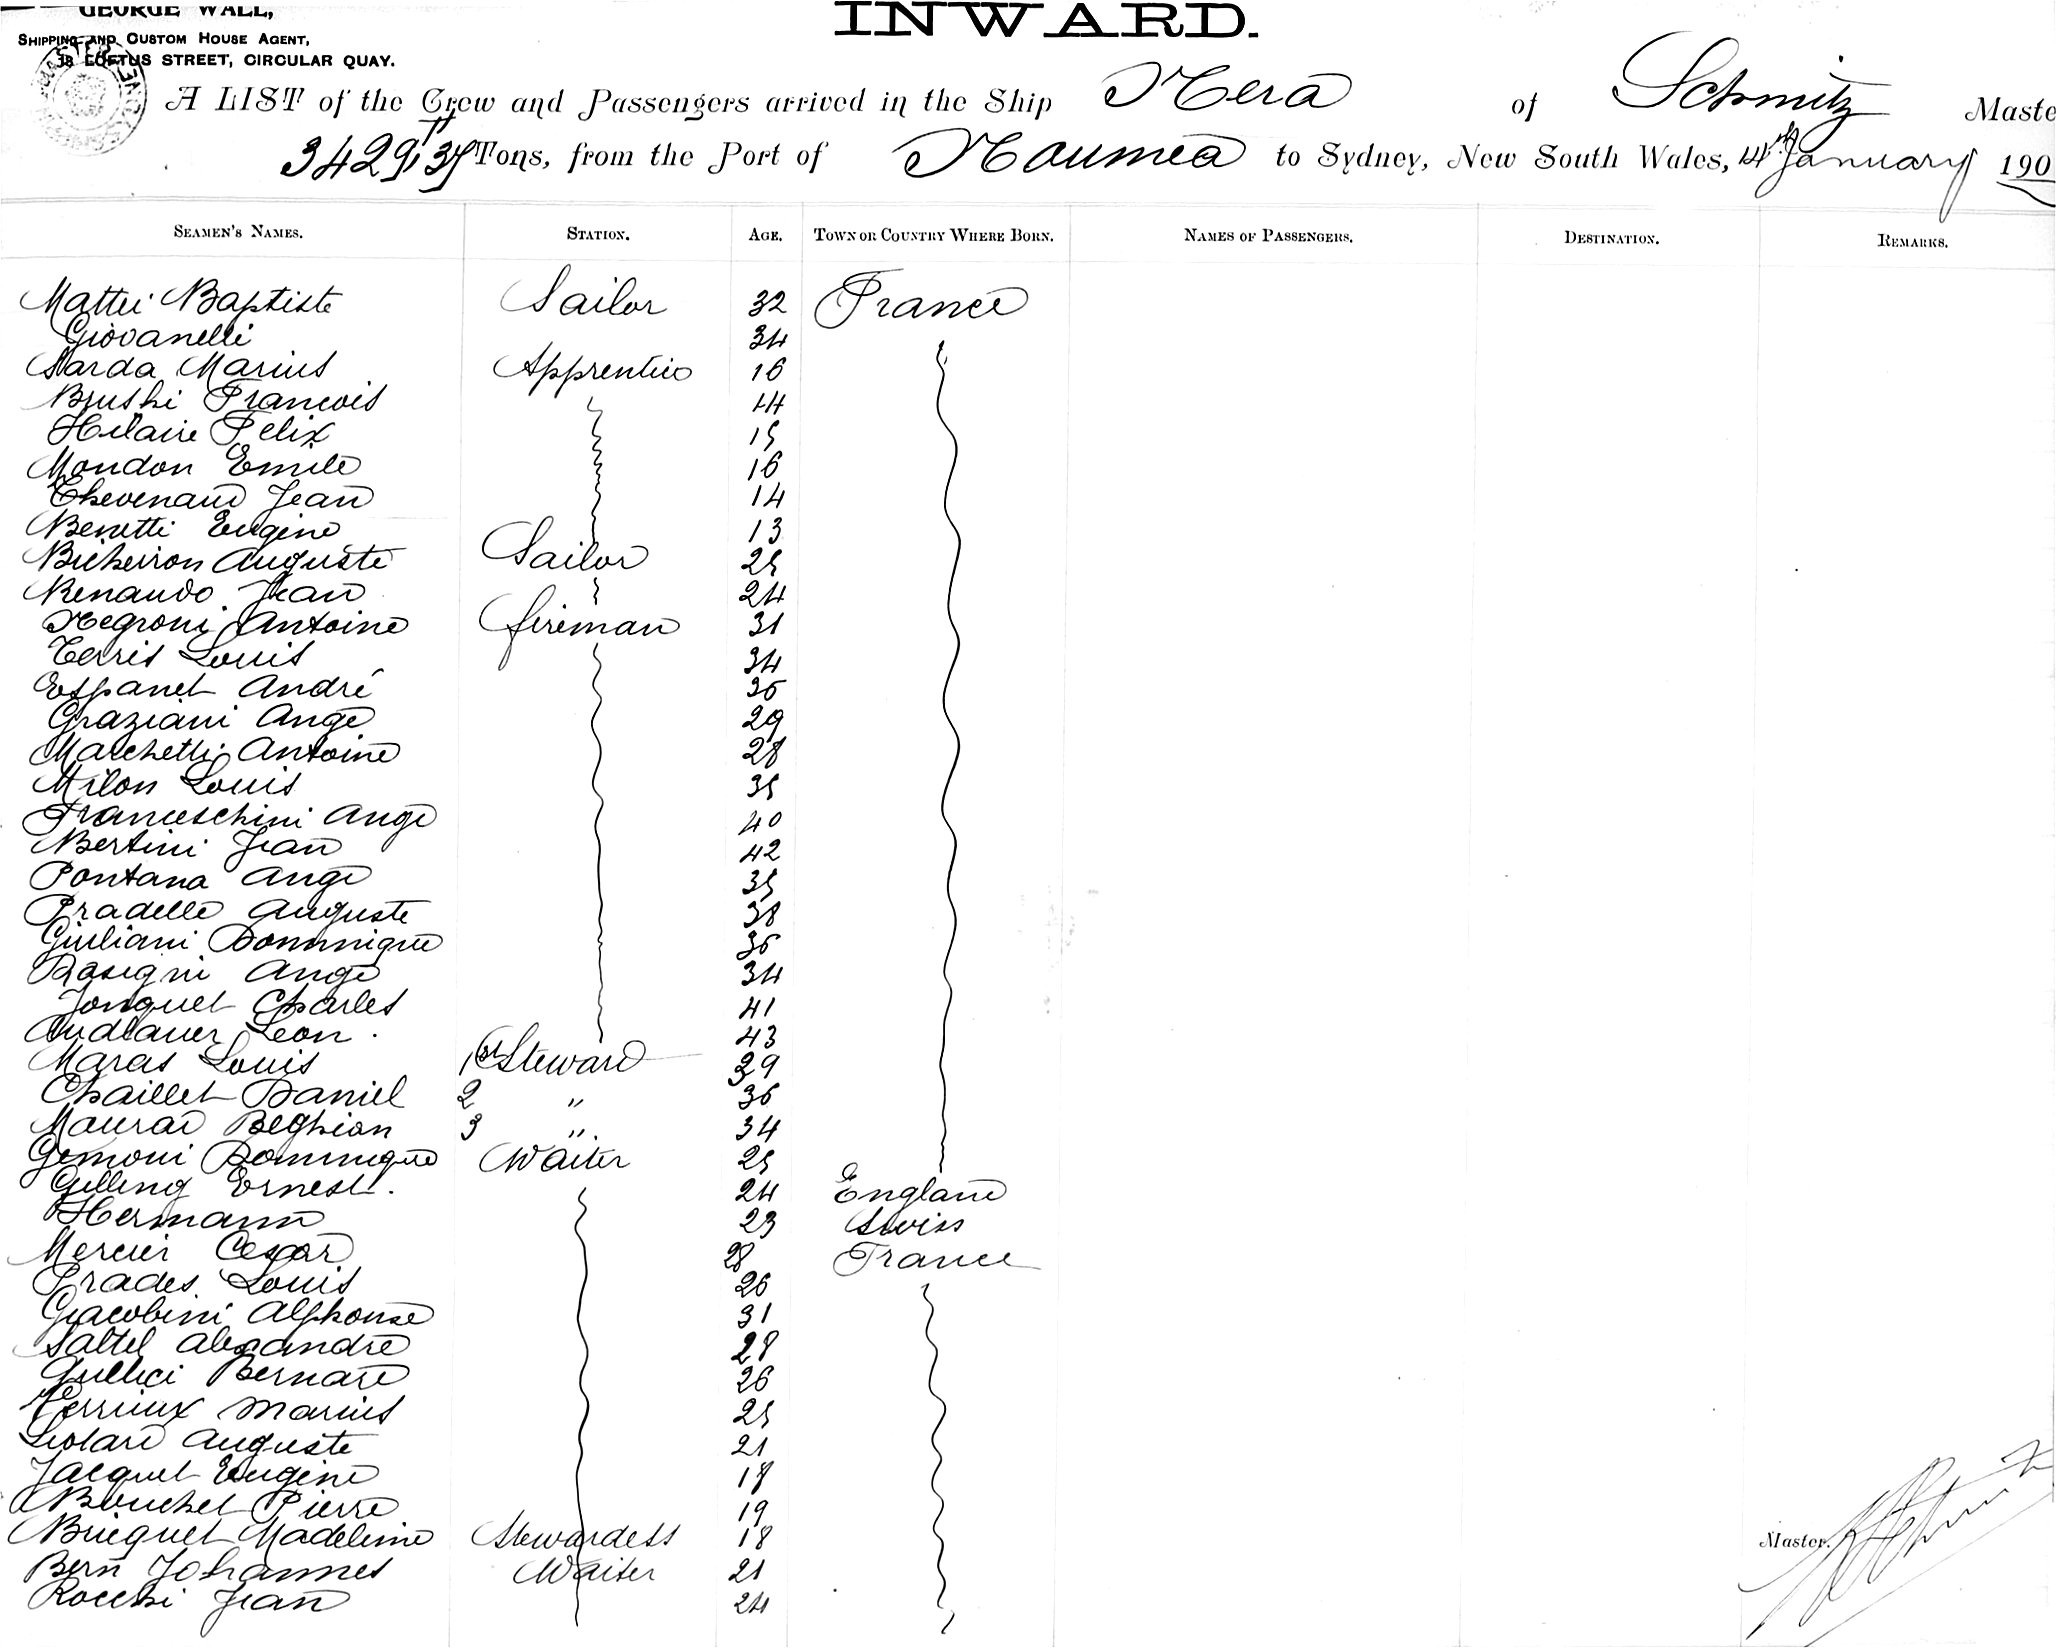 GEORGE WALL,
SHIPPING AND CUSTOM HOUSE AGENT,
18 LOFTUS STREET, CIRCULAR QUAY.
INWARD.
A LIST of the Crew and Passengers arrived in the Ship Nera of Schmitz Maste
3429 Tons, from the Port of Noumea to Sydney, New South Wales, 14th January 190
SEAMEN'S NAMES. STATION. AGE. TOWN OR COUNTRY WHERE BORN. NAMES OF PASSENGERS. DESTINATION. REMARKS.
Mattei Baptiste Sailor 32 France
Giovanelli 34
Sarda Marius Apprentice 16
Brushi Francois 14
Hilaire Felix 15
Mondon Emile 16
Thevenand Jean 14
Benetti Eugene 13
Bicheiron Auguste Sailor 25
Renaudo Jean 24
Negroni Antoine fireman 31
Terris Louis 34
Espanet André 36
Graziani Ange 29
Marchetti Antoine 28
Milon Louis 35
Franceschini Ange 40
Bertini Jean 42
Pontana Ange 35
Pradelle Auguste 38
Giuliani Dominique 36
Rasigni Ange 34
Jonquet Charles 41
Audlauer Leon. 43
Maras Louis 1st Steward 39
Chaillet Daniel 2 " 36
Maurad Beghian 3 " 34
Gemoni Dominique Waiter 25
Gelling Ernest. 24 England
Hermann 23 Swiss
Mercier Cesar 28 France
Prades Louis 26
Giacobini Alphonse 31
Saltel Alexandre 28
Bernard 26
Verrieux Marius 25
Liotard Auguste 21
Jacquet Eugene 18
Bouchet Pierre 19
Bricquet Madeleine Stewardess 18
Bern Johannes Waiter 21
Rocchi Jean 24
Master.